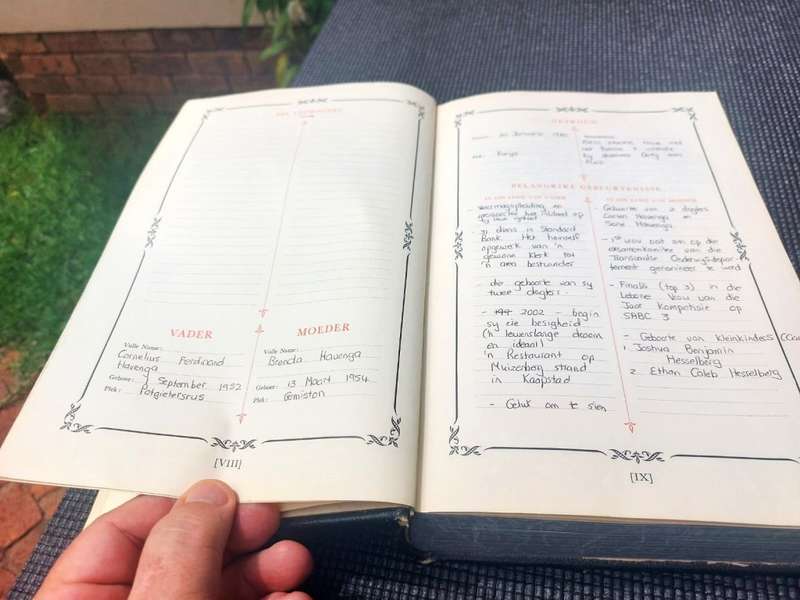 VADER
Volle Name:
Cornelius Ferdinand
Havenga
Gebore: 9 September 1952
Plek: Potgietersrus
MOEDER
Volle Name:
Brenda Havenga
Gebore: 13 Maart 1954
Plek: Germiston
[VIII]
BELANGRIKE GEBEURTENISSE
IN DIE LEWE VAN VADER
- Weermagopleiding en
- In diens in Standard
Bank. Het homself
opgewerk van 'n
gewone klerk tot
'n area bestuurder
- die geboorte van sy
twee dogters.
- 2002 - begin
sy eie besigheid
('n lewenslange droom
en ideaal)
'n Restaurant op
Muizenberg strand
in Kaapstad
- Geluk om te sien
- Geboorte van 2 dogters
Havenga en
Havenga.
- 1ste vrou ooit om op die
eksamenkomitee van die
Transvaalse Onderwysdepar-
tement genomineer te word
- Finalis (top 3) in die
Vrou van die
Jaar Kompetisie op
SABC 3
- Geboorte van kleinkinders
1. Joshua Benjamin
Hesselberg
2. Ethan Caleb Hesselberg
[IX]